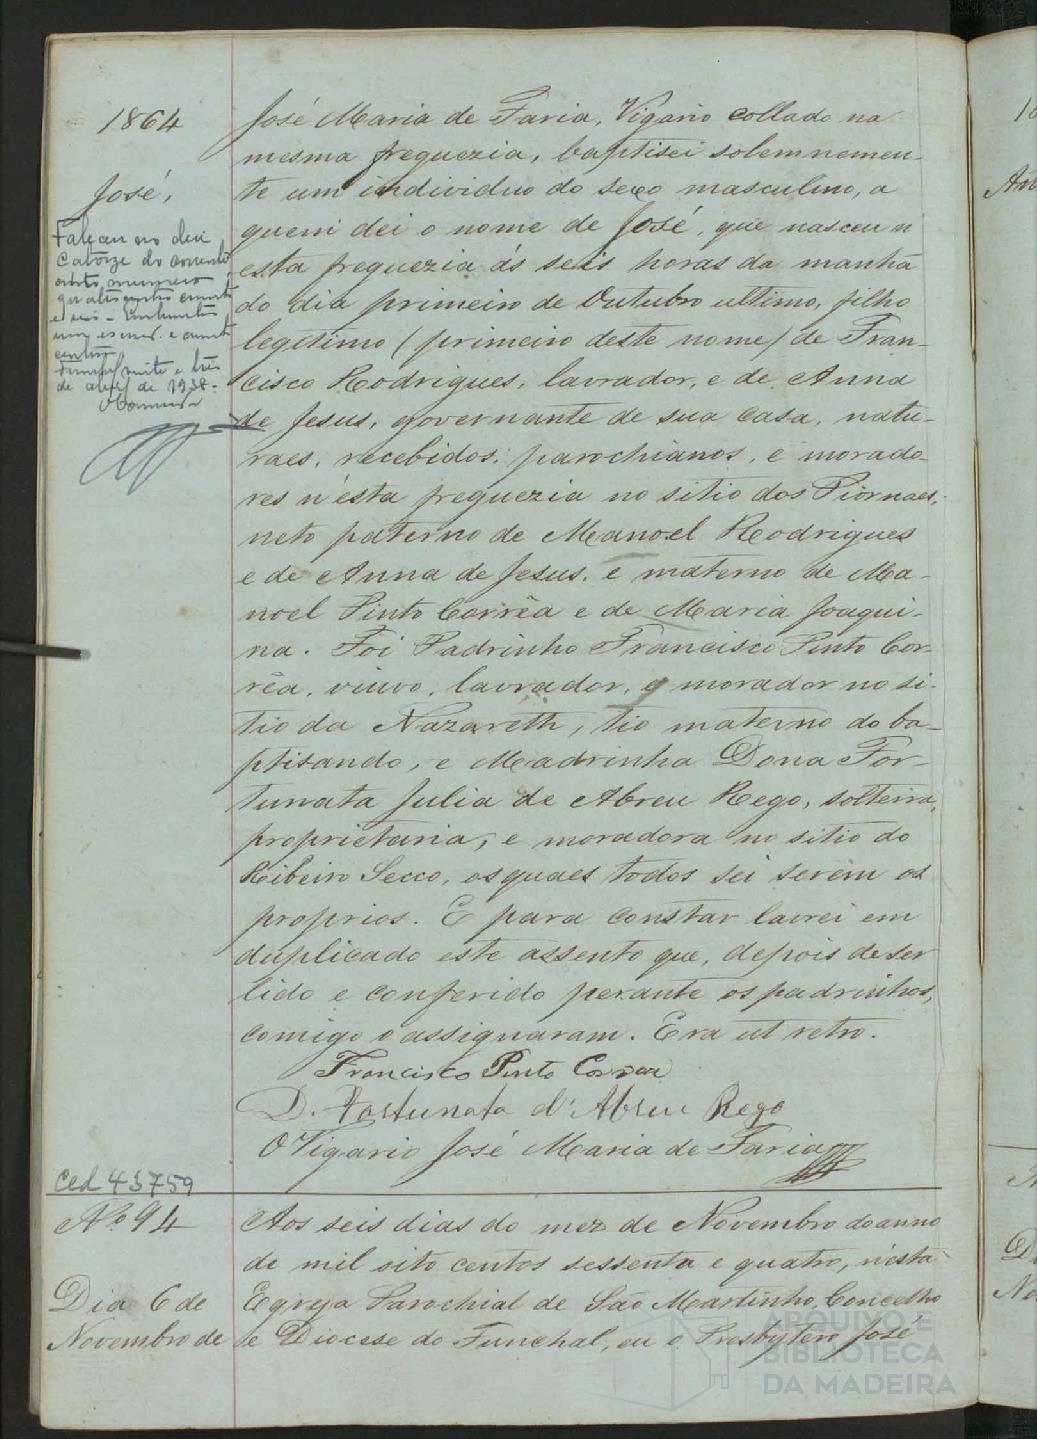 1864
José,
Faleceu no dia
catorze do corrente
1938.
José Maria de Faria, Vigario collado na
mesma freguezia, baptisei solemnemen-
te um individuo do sexo masculino, a
quem dei o nome de José, que nasceu n
esta freguezia ás seis horas da manhã
do dia primeiro de Outubro ultimo, filho
legitimo (primeiro deste nome) de Fran-
cisco Rodrigues, lavrador, e de Anna
de Jesus, governante de sua casa, natu-
raes, recebidos, parochianos, e morado
res n'esta freguezia no sitio dos Piornaes,
neto paterno de Manoel Rodrigues
e de Anna de Jesus, e materno de Ma-
noel Pinto Corrêa e de Maria Joaqui-
na. Foi Padrinho Francisco Pinto Cor-
rêa, viuvo, lavrador, e morador no si-
tio da Nazareth, tio materno do ba-
ptisando, e Madrinha Dona For-
tunata Julia de Abreu Rego, solteira,
proprietaria, e moradora no sitio do
Ribeiro Secco, os quaes todos sei serem os
proprios. E para constar lavrei em
duplicado este assento que, depois de ser
lido e conferido perante os padrinhos,
comigo o assignaram. Era ut retro.
Francisco Pinto Correa
D. Fortunata d'Abreu Rego
O Vigario José Maria de Faria
Ced 43759
Nº 94
Dia 6 de
Novembro de
Aos seis dias do mez de Novembro do anno
de mil oito centos sessenta e quatro, n'esta
Egreja Parochial de São Martinho, Concelho
e Diocese do Funchal, eu o Presbytero José
ARQUIVO E
BIBLIOTECA
DA MADEIRA